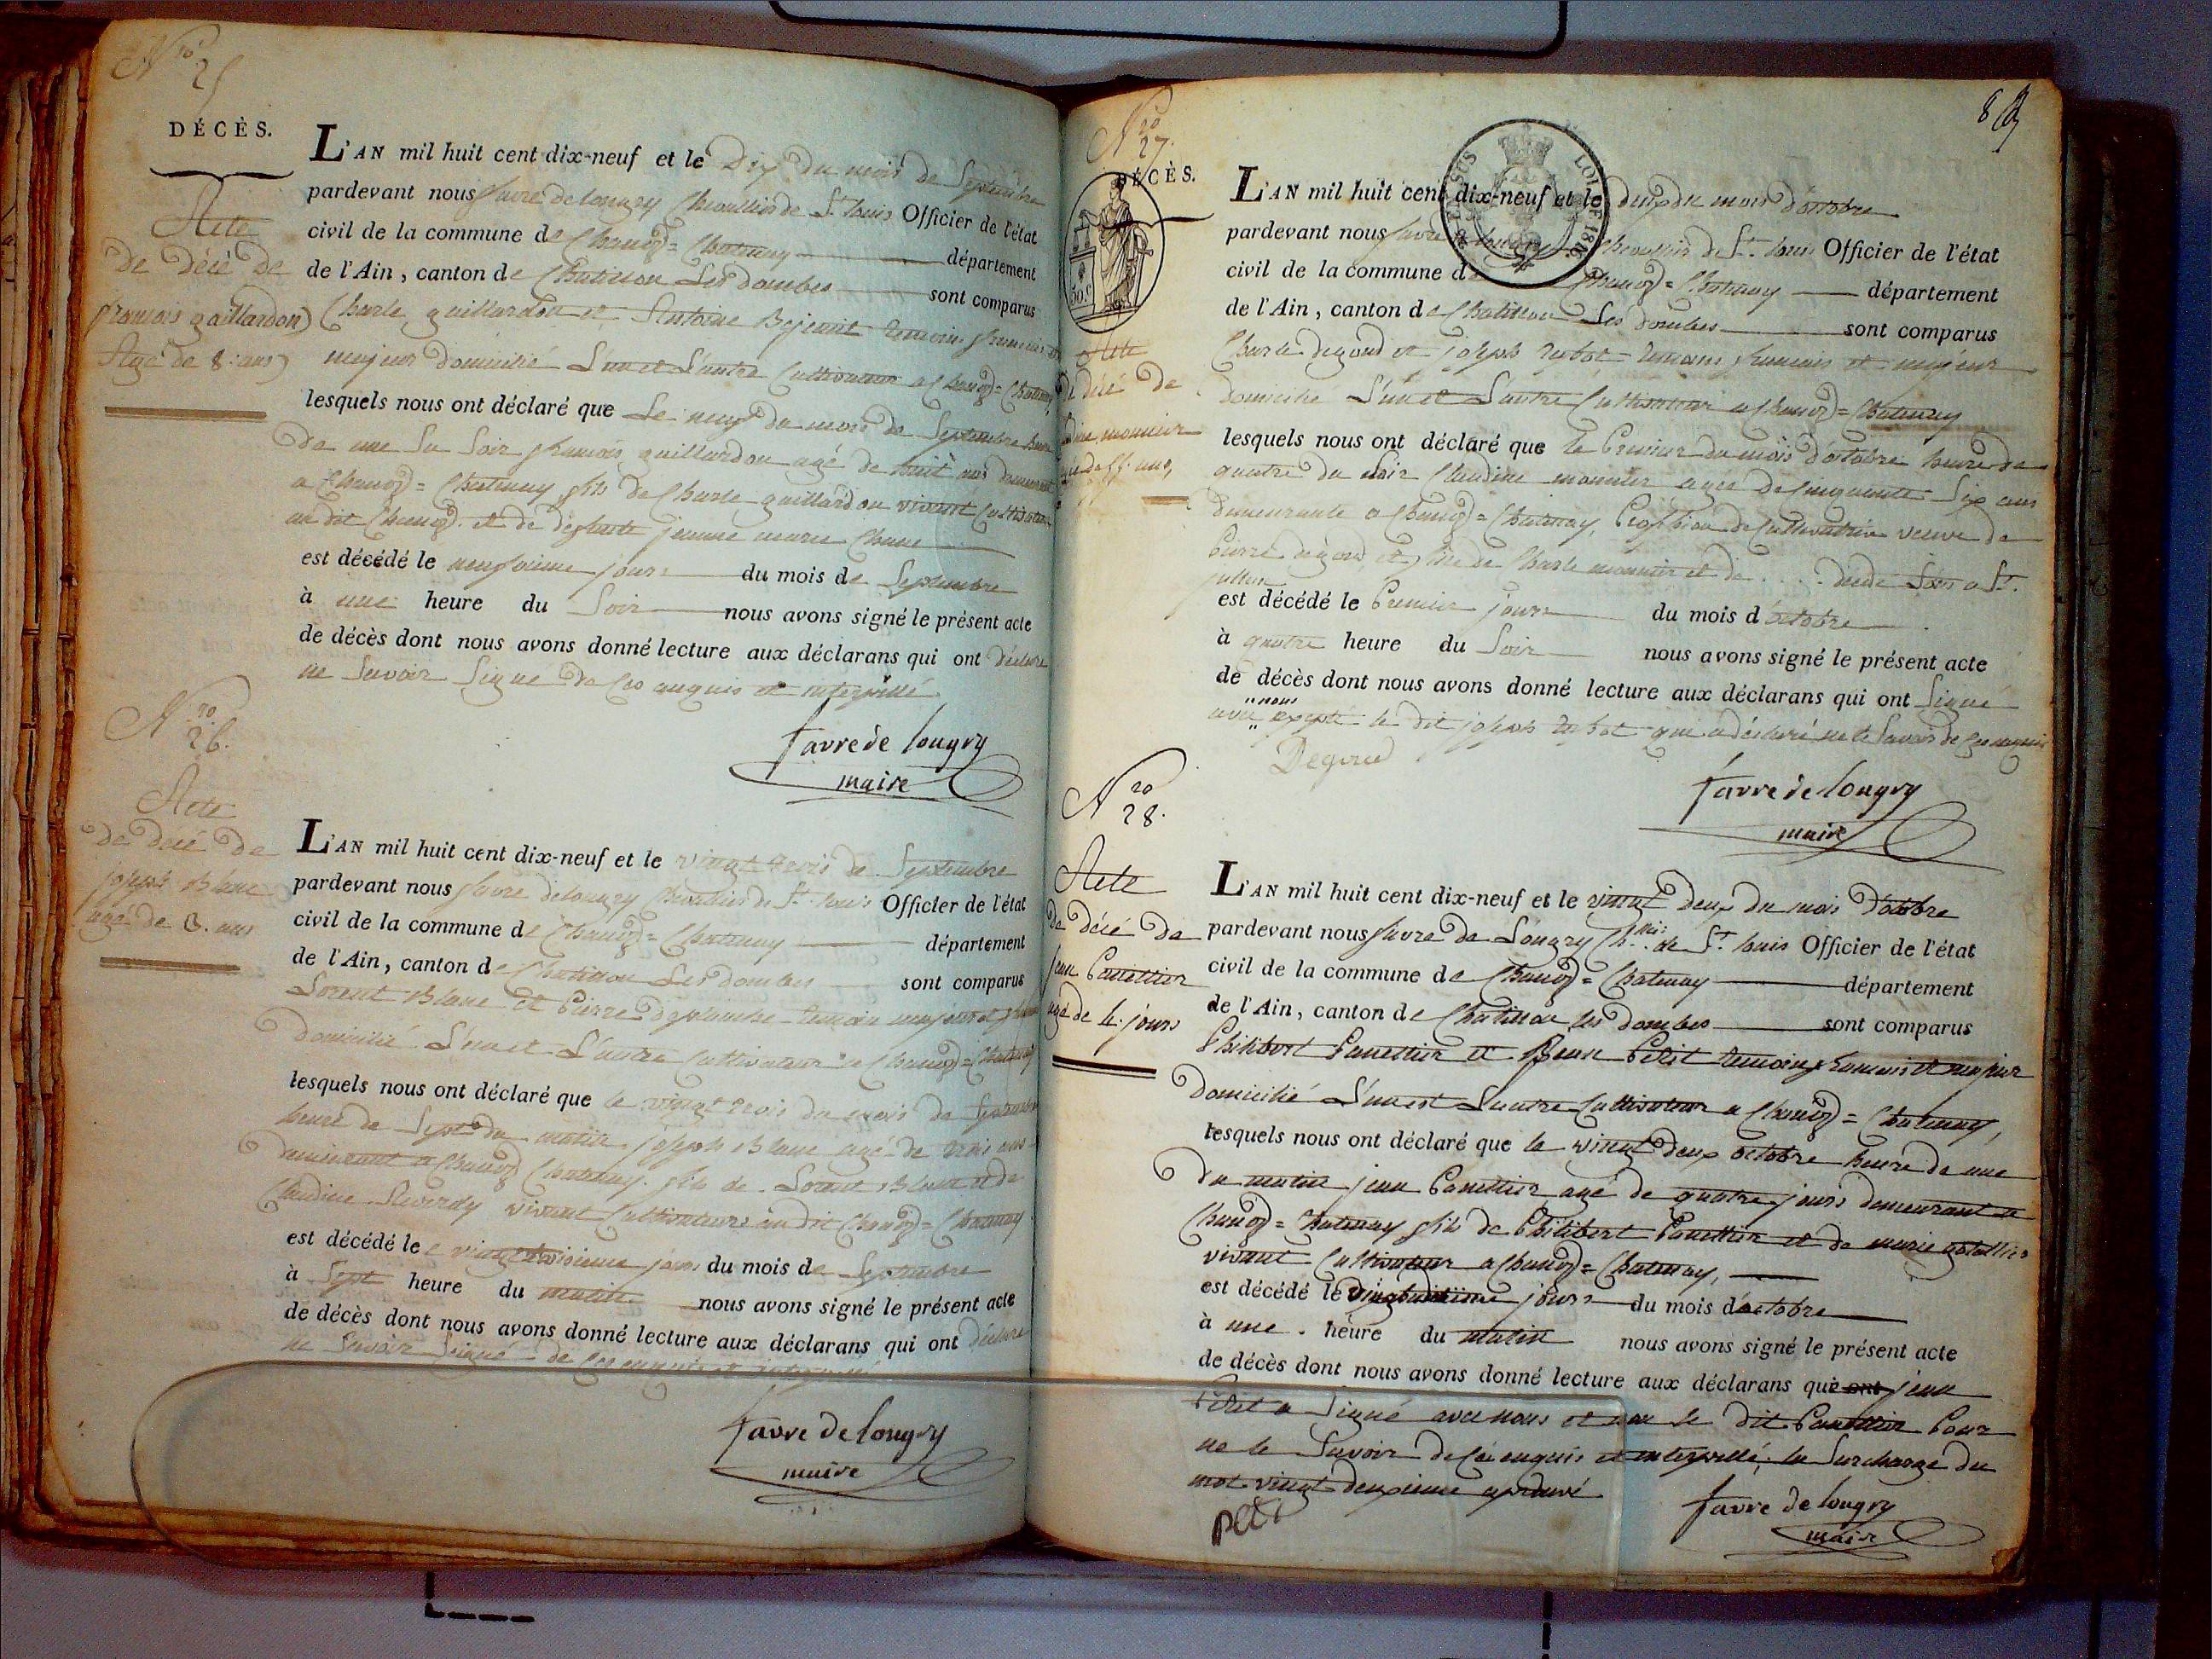 Nro 25
DÉCÈS.
Acte
de décé de
françois gaillardon
Agé de 8: ans
L'AN mil huit cent dix-neuf et le Dix du mois de Septembre
pardevant nous favre de longry Chevallier de St. louis Officier de l'état
civil de la commune de Chanoz=Chatenay département
de l'Ain, canton de Chatillon Les dombes sont comparus
Charle gaillardon et Antoine Bejeant temoins francais et
majeur domicilié L'un et L'autre Cultivateur a Chanoz=Chatenay
lesquels nous ont déclaré que Le neuf du mois de Septembre heure
de une du Soir francois gaillardon agé de huit ans demeurant
a Chanoz=Chatenay fils de Charle gaillardon vivant Cultivateur
au dit Chanoz et de defunte jeanne marie
est décédé le neufvieme jours du mois de Septembre
à une heure du Soir nous avons signé le présent acte
de décès dont nous avons donné lecture aux déclarans qui ont déclaré
ne Savoir Signé de Ces enquis et interpellé
favre de longry
maire
Nro 26.
Acte
de décé de
joseph Blanc
agé de 3. ans
L'AN mil huit cent dix-neuf et le vingt trois de Septembre
pardevant nous favre de longry Chevallier de St. louis Officier de l'état
civil de la commune de Chanoz=Chatenay département
de l'Ain, canton de Chatillon Les dombes sont comparus
Lorent Blanc et Pierre temoin majeur et
Domicilié L'un et L'autre Cultivateur a Chanoz=Chatenay
lesquels nous ont déclaré que le vingt trois du mois de Septembre
heure de Sept du matin joseph Blanc agé de trois ans
demeurant a Chanoz Chatenay fils de Lorent Blanc et de
Claudine vivant Cultivateurs au dit Chanoz=Chatenay
est décédé le vingt troisieme jours du mois de Septembre
à Sept heure du matin nous avons signé le présent acte
de décès dont nous avons donné lecture aux déclarans qui ont déclaré
ne Savoir Signé de Ces enquis et interpellé
favre de longry
maire
8
Nro 27.
DÉCÈS.
50 c
Acte
de décé de
monnier
ans
L'AN mil huit cent dix-neuf et le deux du mois d'octobre
pardevant nous favre de longry Chevallier de St. louis Officier de l'état
civil de la commune de Chanoz=Chatenay département
de l'Ain, canton de Chatillon Les dombes sont comparus
Charle degoud et joseph temoins francais et majeur
domicilié L'un et L'autre Cultivateur a Chanoz=Chatenay
lesquels nous ont déclaré que le Premier du mois d'octobre heure de
quatre du Soir Claudine monnier agee de Cinquante Six ans
demeurante a Chanoz=Chatenay, Profession de Cultivatrice veuve de
Pierre degoud et fille de Charle monnier et de . . . . a St.
est décédé le Premier jours du mois d'octobre
à quatre heure du Soir nous avons signé le présent acte
de décès dont nous avons donné lecture aux déclarans qui ont Signé
avec nous excepté le dit joseph qui a déclaré ne le Savoir de Ces enquis
Degoud
favre de longry
maire
Nro 28.
Acte
de décé de
jean Panettier
agé de 4. jours
L'AN mil huit cent dix-neuf et le vingt deux du mois d'octobre
pardevant nous favre de Longry de St. louis Officier de l'état
civil de la commune de Chanoz=Chatenay département
de l'Ain, canton de Chatillon les dombes sont comparus
Philibert Panettier et Jean Petit temoins francais et majeur
Domicilié L'un et L'autre Cultivateur a Chanoz=Chatenay,
lesquels nous ont déclaré que le vingt deux octobre heure de une
du matin jean Panettier agé de quatre jours demeurant a
Chanoz=Chatenay fils de Philibert Panettier et de marie
vivant Cultivateur a Chanoz=Chatenay,
est décédé le vingtdeuxieme jours du mois d'octobre
à une . heure du matin nous avons signé le présent acte
de décès dont nous avons donné lecture aux déclarans que ont jean
Petit a Signé avec nous et non le dit Panettier Pour
ne le Savoir de Ce enquis et interpellé, la Surcharge du
mot vingt deuxieme aprouvé
petit
favre de longry
maire